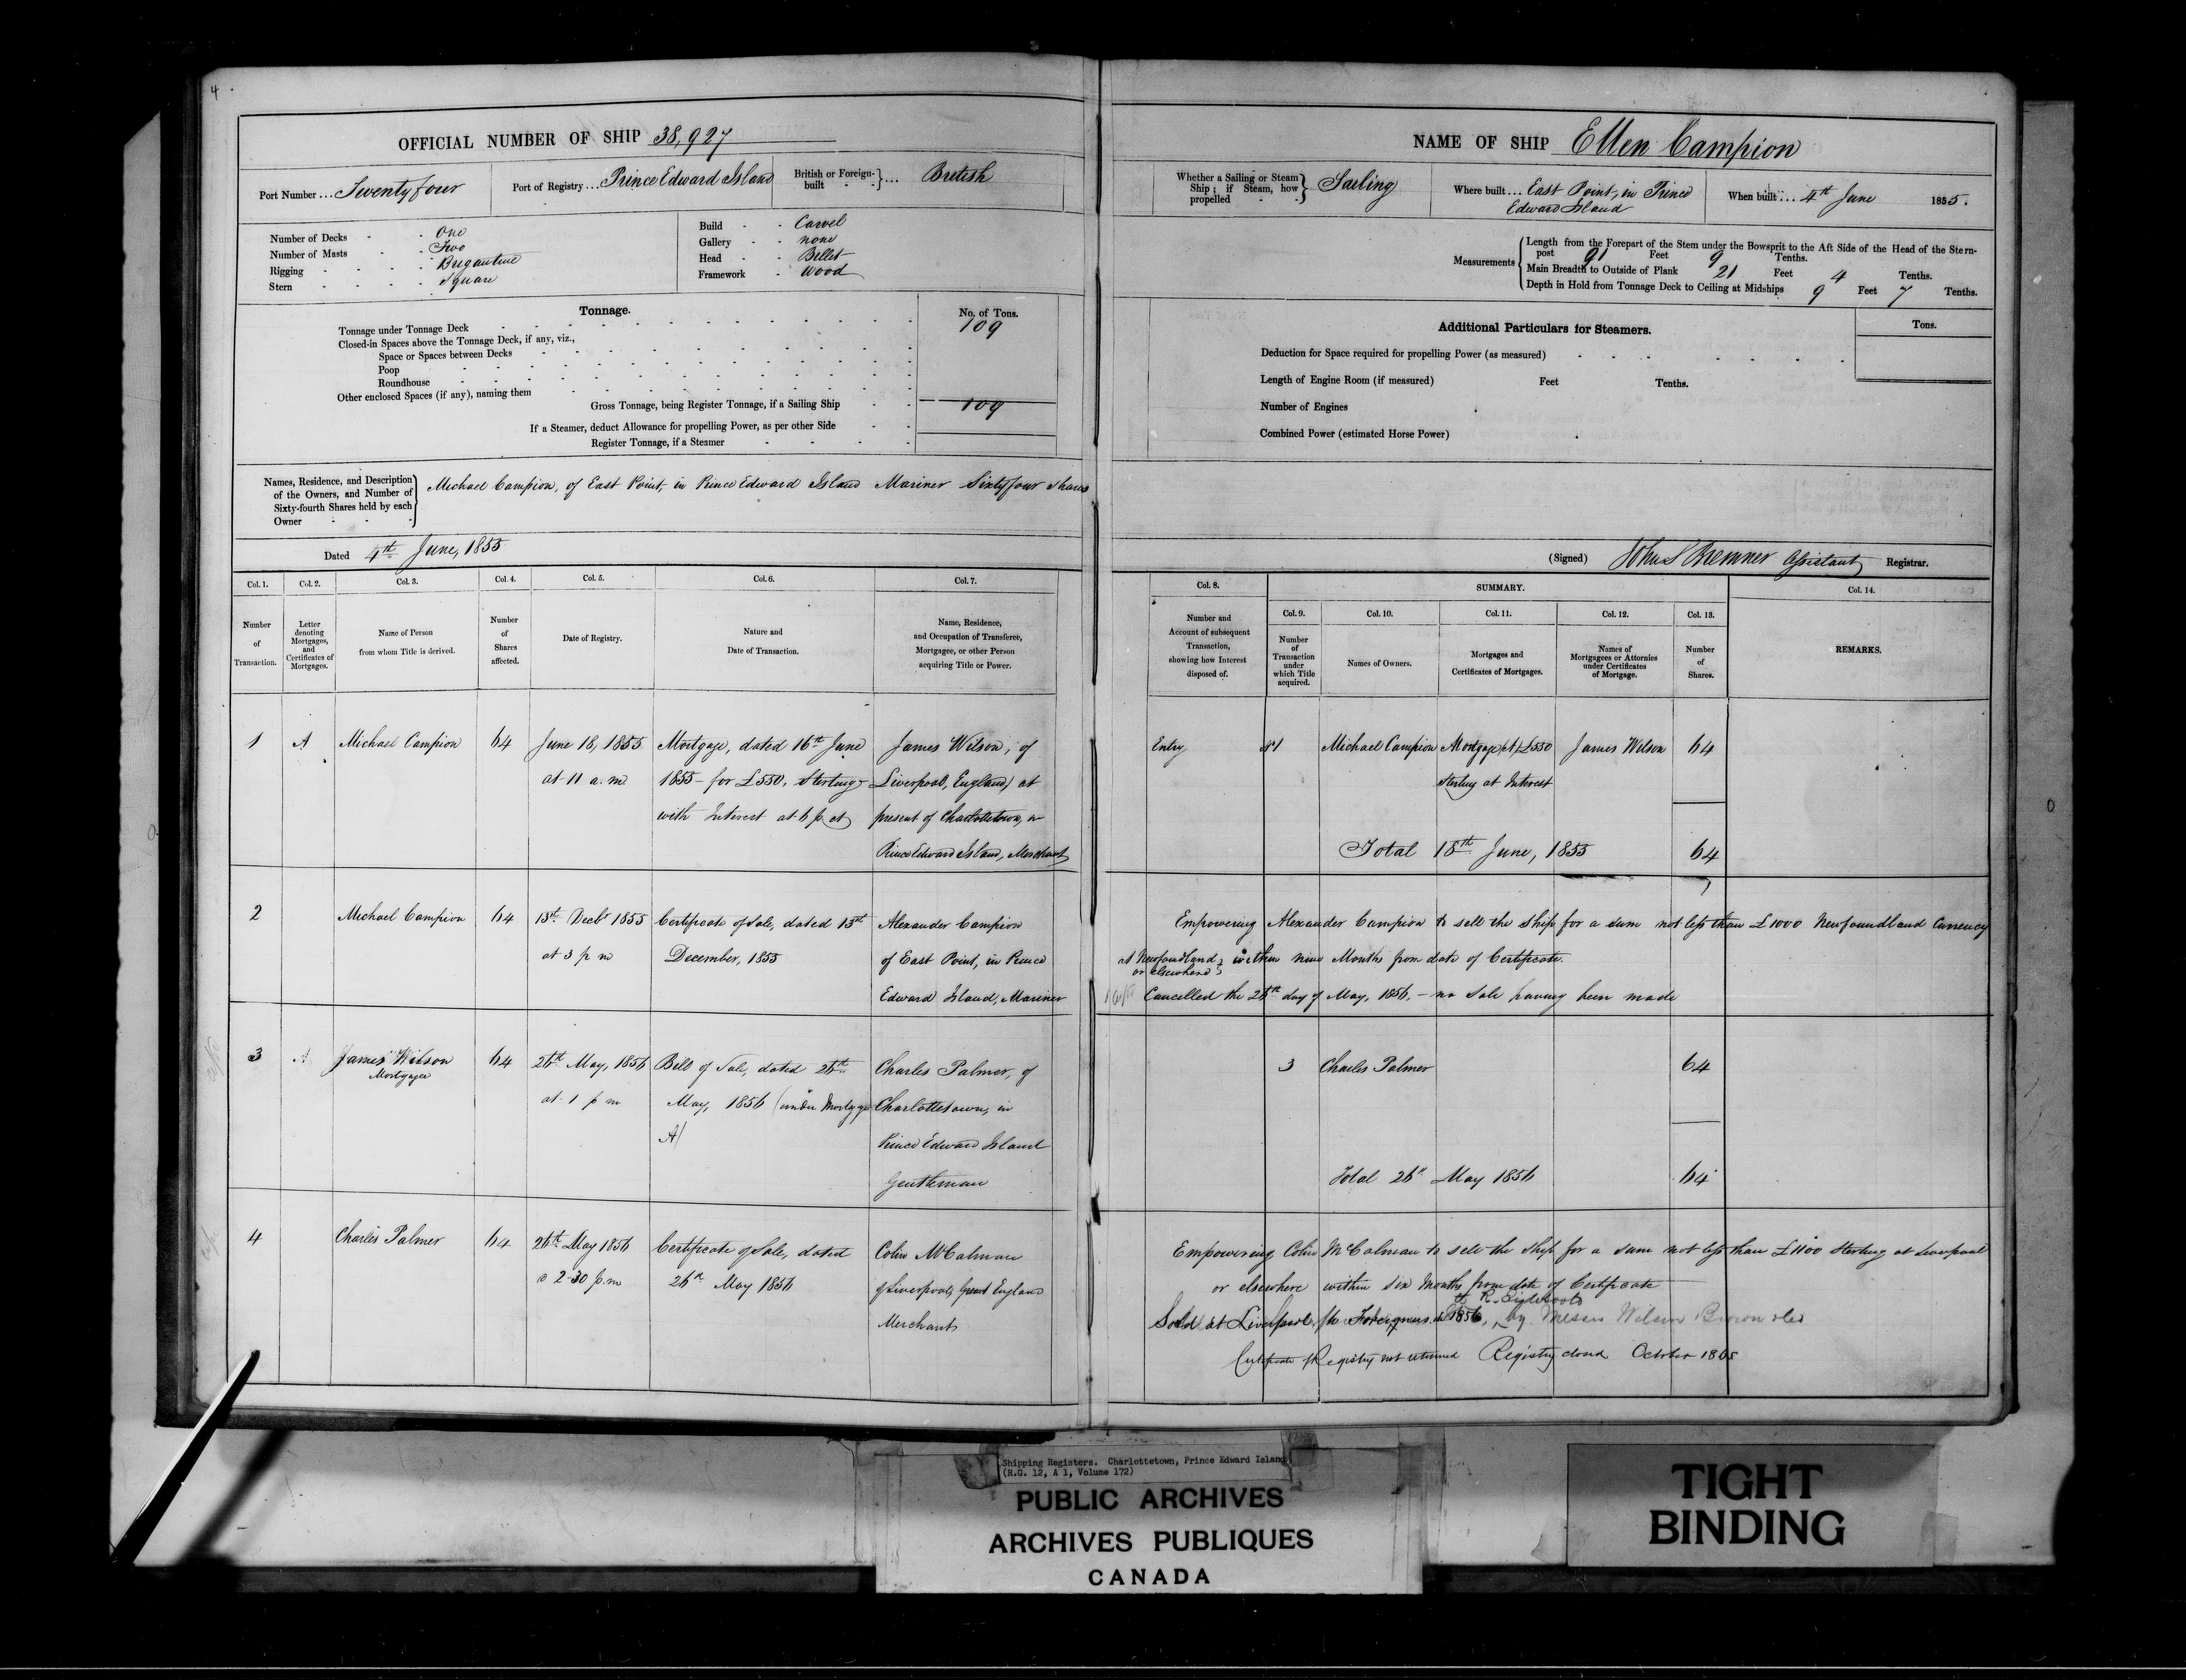 4
OFFICIAL NUMBER OF SHIP 38,927
Port Number ... Twenty four
Port of Registry ... Prince Edward Island
British or Foreign-built - - } ... British
Number of Decks - - One
Number of Masts - - Two
Rigging - - - - Brigantine
Stern - - - - Square
Build - - Carvel
Gallery - - none
Head - - Billet
Framework - Wood
Tonnage.
No. of Tons.
Tonnage under Tonnage Deck 109
Closed-in Spaces above the Tonnage Deck, if any, viz.,
Space or Spaces between Decks
Poop
Roundhouse
Other enclosed Spaces (if any), naming them
Gross Tonnage, being Register Tonnage, if a Sailing Ship 109
If a Steamer, deduct Allowance for propelling Power, as per other Side
Register Tonnage, if a Steamer
Names, Residence, and Description
of the Owners, and Number of
Sixty-fourth Shares held by each
Owner - -
Michael Campion, of East Point, in Prince Edward Island Mariner Sixty four shares
Dated 4th June, 1855
Col. 1. Col. 2. Col. 3. Col. 4. Col. 5. Col. 6. Col. 7.
Number of Transaction.
Letter denoting Mortgages, and Certificates of Mortgages.
Name of Person from whom Title is derived.
Number of Shares affected.
Date of Registry.
Nature and Date of Transaction.
Name, Residence, and Occupation of Transferee, Mortgagee, or other Person acquiring Title or Power.
1 A Michael Campion 64 June 18, 1855 Mortgage, dated 16th June James Wilson, of
at 11 a.m. 1855 - for £550, Sterling Liverpool, England, at
with Interest at 6 p ct present of Charlottetown, in
Prince Edward Island, Merchant
2 Michael Campion 64 13th Decbr 1855 Certificate of Sale, dated 13th Alexander Campion
at 3 p m December, 1855 of East Point, in Prince
Edward Island, Mariner
3 A James Wilson 64 26th May, 1856 Bill of Sale, dated 26th Charles Palmer, of
Mortgagee at 1 p m May, 1856 (under Mortgage Charlottetown, in
A) Prince Edward Island
Gentleman
4 Charles Palmer 64 26th May 1856 Certificate of Sale, dated Colin McCalman
2-30 p.m 26th May 1856 of Liverpool, England
Merchant
NAME OF SHIP Ellen Campion
Whether a Sailing or Steam
Ship; if Steam, how
propelled - - } Sailing
Where built ... East Point, in Prince
Edward Island
When built ... 4th June 1855.
Measurements
Length from the Forepart of the Stem under the Bowsprit to the Aft Side of the Head of the Stern-
post 91 Feet 9 Tenths.
Main Breadth to Outside of Plank 21 Feet 4 Tenths.
Depth in Hold from Tonnage Deck to Ceiling at Midships 9 Feet 7 Tenths.
Additional Particulars for Steamers.
Tons.
Deduction for Space required for propelling Power (as measured)
Length of Engine Room (if measured) Feet Tenths.
Number of Engines
Combined Power (estimated Horse Power)
(Signed) John S Bremner Assistant Registrar.
Col. 8. SUMMARY. Col. 14.
Col. 9. Col. 10. Col. 11. Col. 12. Col. 13.
Number and Account of subsequent Transaction, showing how Interest disposed of.
Number of Transaction under which Title acquired.
Names of Owners.
Mortgages and Certificates of Mortgages.
Names of Mortgagees or Attornies under Certificates of Mortgage.
Number of Shares.
REMARKS.
Entry 1 Michael Campion Mortgage (A) £550 James Wilson 64
Sterling at Interest
Total 18th June, 1855 64
Empowering Alexander Campion to sell the Ship for a sum not less than £1000 Newfoundland Currency
at Newfoundland, within nine Months from date of Certificate.
or elsewhere
Cancelled the 26th day of May, 1856, - no Sale having been made
3 Charles Palmer 64
Total 26th May 1856 64
Empowering Colin McCalman to sell the Ship for a sum not less than £1100 Sterling at Liverpool
or elsewhere within six months from date of Certificate
Sold at Liverpool, to Foreigners in 1856, by Messrs Wilson
Certificate of Registry not returned Registry closed October 1865
Shipping Registers. Charlottetown, Prince Edward Island
(R.G. 12, A 1, Volume 172)
PUBLIC ARCHIVES
ARCHIVES PUBLIQUES
CANADA
TIGHT
BINDING